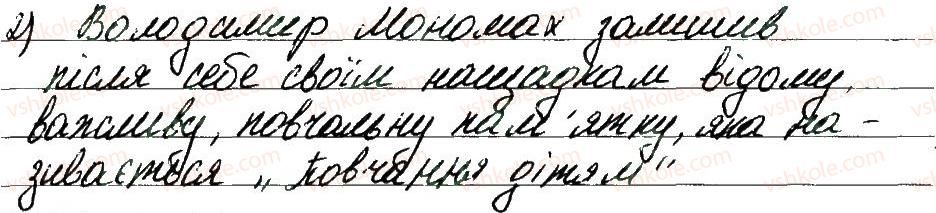 2) Володимир Мономах залишив
після себе своїм нащадкам відому,
важливу, повчальну пам'ятку, яка на-
зивається „Повчання дітям"